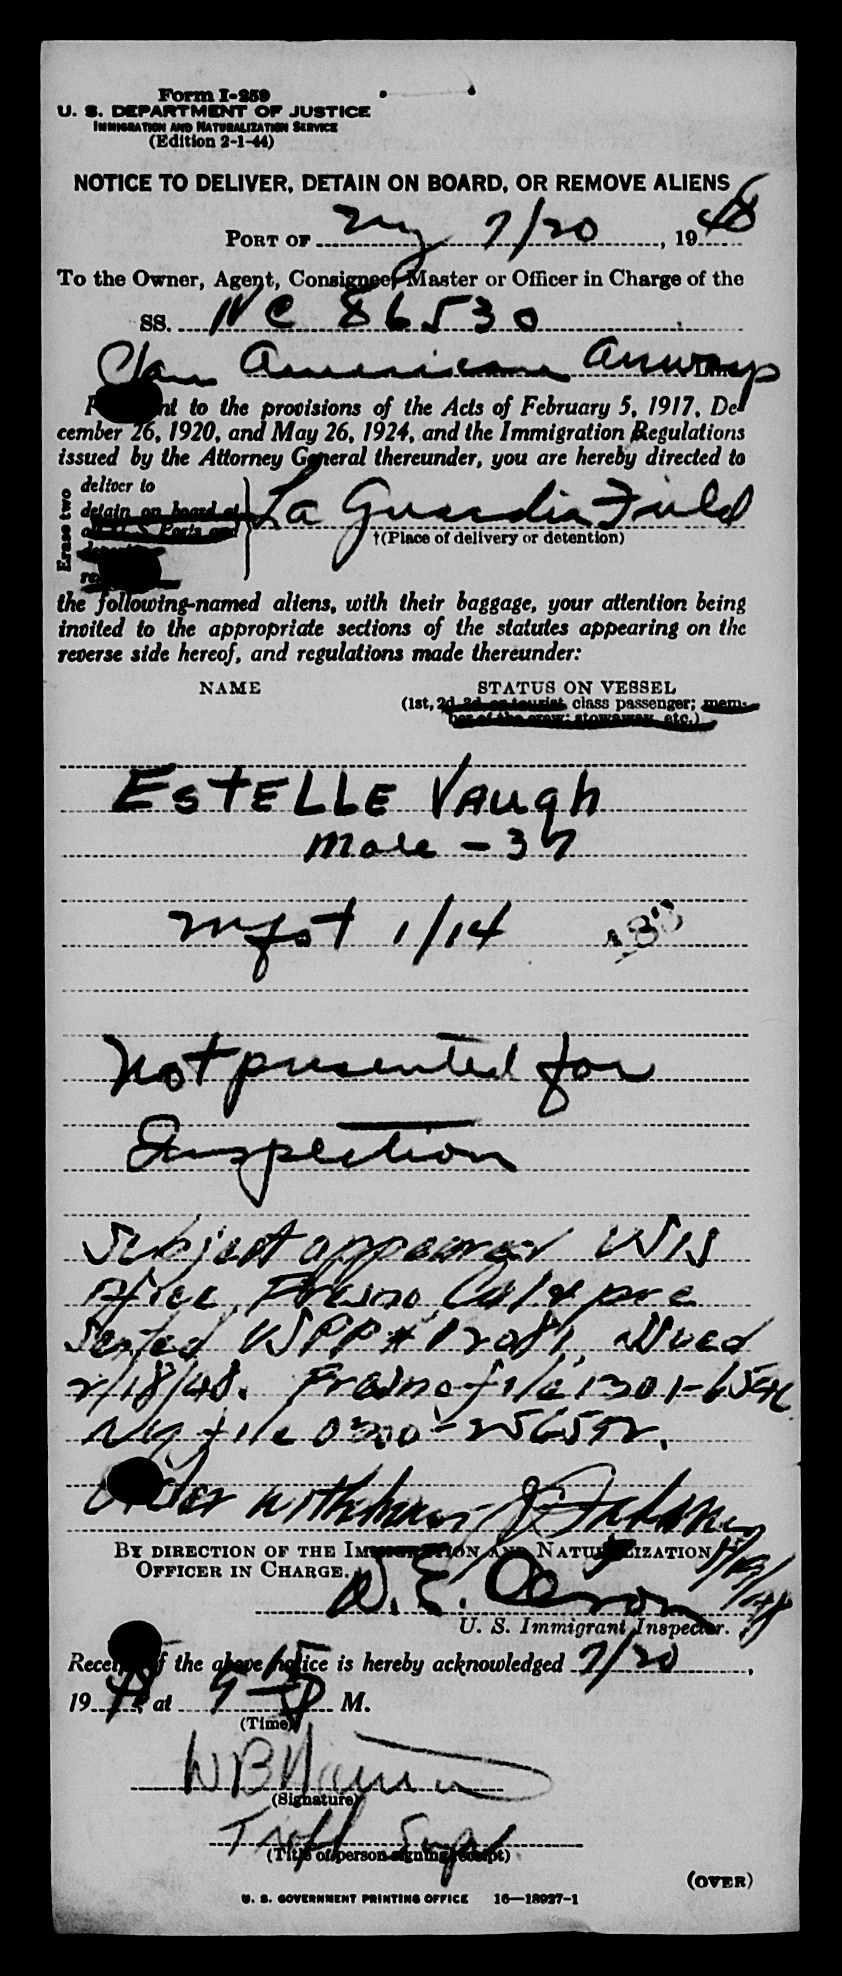 Form I-259
U. S. DEPARTMENT OF JUSTICE
IMMIGRATION AND NATURALIZATION SERVICE
(Edition 2-1-44)
NOTICE TO DELIVER, DETAIN ON BOARD, OR REMOVE ALIENS
PORT OF NY 7/20, 1948
To the Owner, Agent, Consignee, Master or Officer in Charge of the
SS. NC 86530
Pan American Airways
to the provisions of the Acts of February 5, 1917, De-
cember 26, 1920, and May 26, 1924, and the Immigration Regulations
issued by the Attorney General thereunder, you are hereby directed to
Erase two
deliver to
detain on board at
La Guardia Field
†(Place of delivery or detention)
the following-named aliens, with their baggage, your attention being
invited to the appropriate sections of the statutes appearing on the
reverse side hereof, and regulations made thereunder:
NAME STATUS ON VESSEL
(1st, 2d, 3d, or tourist class passenger; mem-
ber of the crew; stowaway, etc.)
ESTELLE VAUGH
Male - 37
mfst 1/14
Not presented for
Inspection
Subject appeared
office, Fresno Calif pre
sented USPP# issued
2/18/48. Fresno file
NY file
Order withdrawn
BY DIRECTION OF THE IMMIGRATION AND NATURALIZATION
OFFICER IN CHARGE.
U. S. Immigrant Inspector.
Receipt of the above notice is hereby acknowledged 7/20,
1948, at M.
(Time)
(Signature)
(Title of person signing receipt)
(OVER)
U. S. GOVERNMENT PRINTING OFFICE 16—18927-1